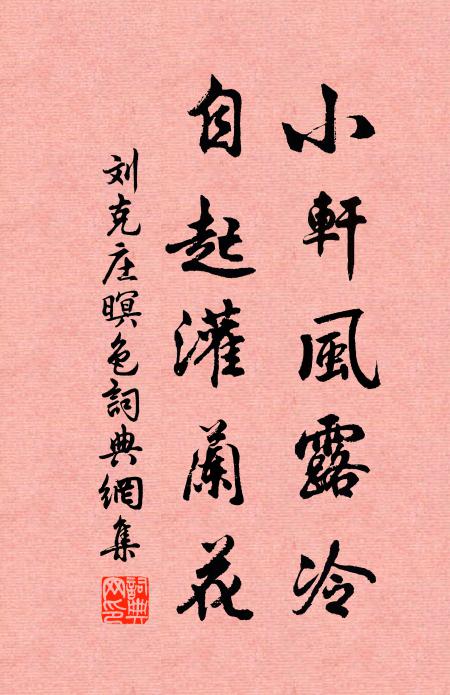 小軒風露冷
自起灌蘭花
刘克庄暝色詞典網集
詞典網印